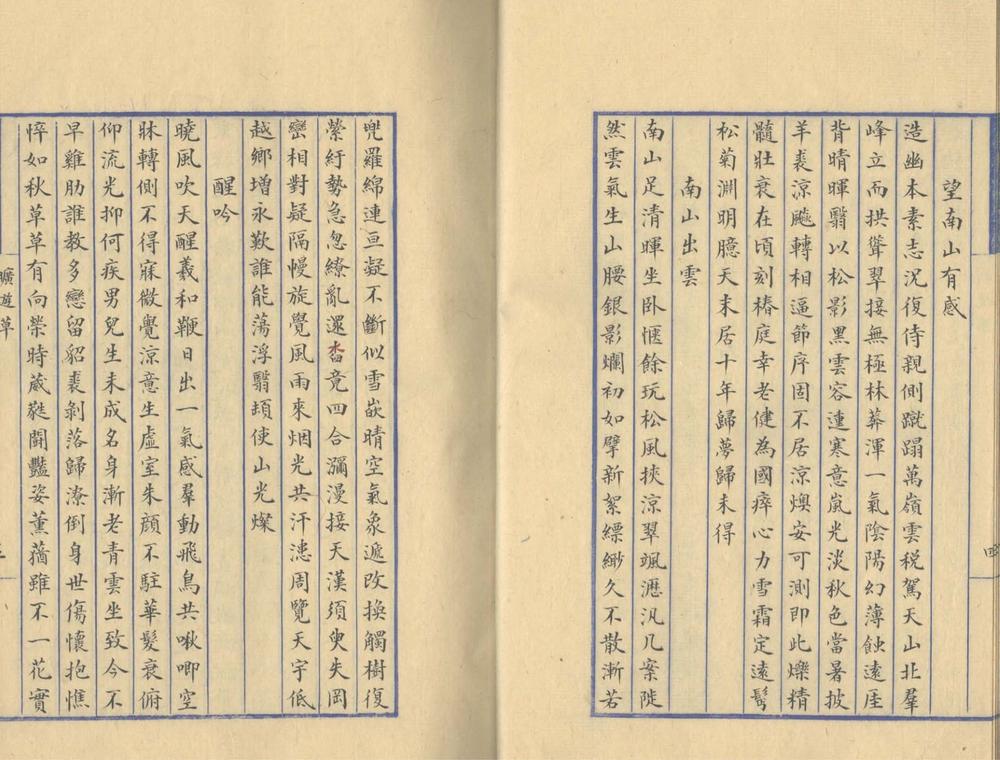 望南山有感
造幽本素志況復侍親側蹴蹋萬嶺雲稅駕天山北羣
峰立而拱聳翠接無極林莽渾一氣陰陽幻薄蝕遠厓
背晴暉翳以松影黑雲容連寒意嵐光淡秋色當暑披
羊裘涼飈轉相逼節序固不居涼燠安可測即此爍精
髓壯衰在頃刻椿庭幸老健為國瘁心力雪霜定遠髩
松菊淵明臆天末居十年歸夢歸未得
南山出雲
南山足清暉坐卧愜餘玩松風挾涼翠颯瀝汎几案陡
然雲氣生山腰銀影爛初如擘新絮縹緲久不散漸若
兜羅綿連亘凝不斷似雪嵌晴空氣象遞改換觸樹復
縈紆勢急忽繚亂還杳竟四合瀰漫接天漢須臾失岡
巒相對疑隔幔旋覺風雨來烟光共汗漶周覽天宇低
越鄉增永歎誰能蕩浮翳頓使山光燦
醒吟
曉風吹天醒羲和鞭日出一氣感羣動飛鳥共啾唧空
牀轉側不得寐微覺涼意生虛室朱顏不駐華髮衰俯
仰流光抑何疾男兒生未成名身漸老青雲坐致今不
早雞肋誰教多戀留貂裘剝落歸潦倒身世傷懷抱憔
悴如秋草草有向榮時葳蕤鬭豔姿薰蕕雖不一花實
曠遊草
四